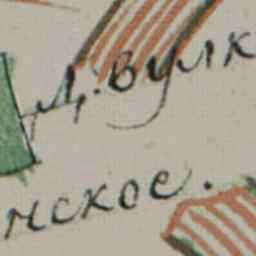 Д: вулк
нское.